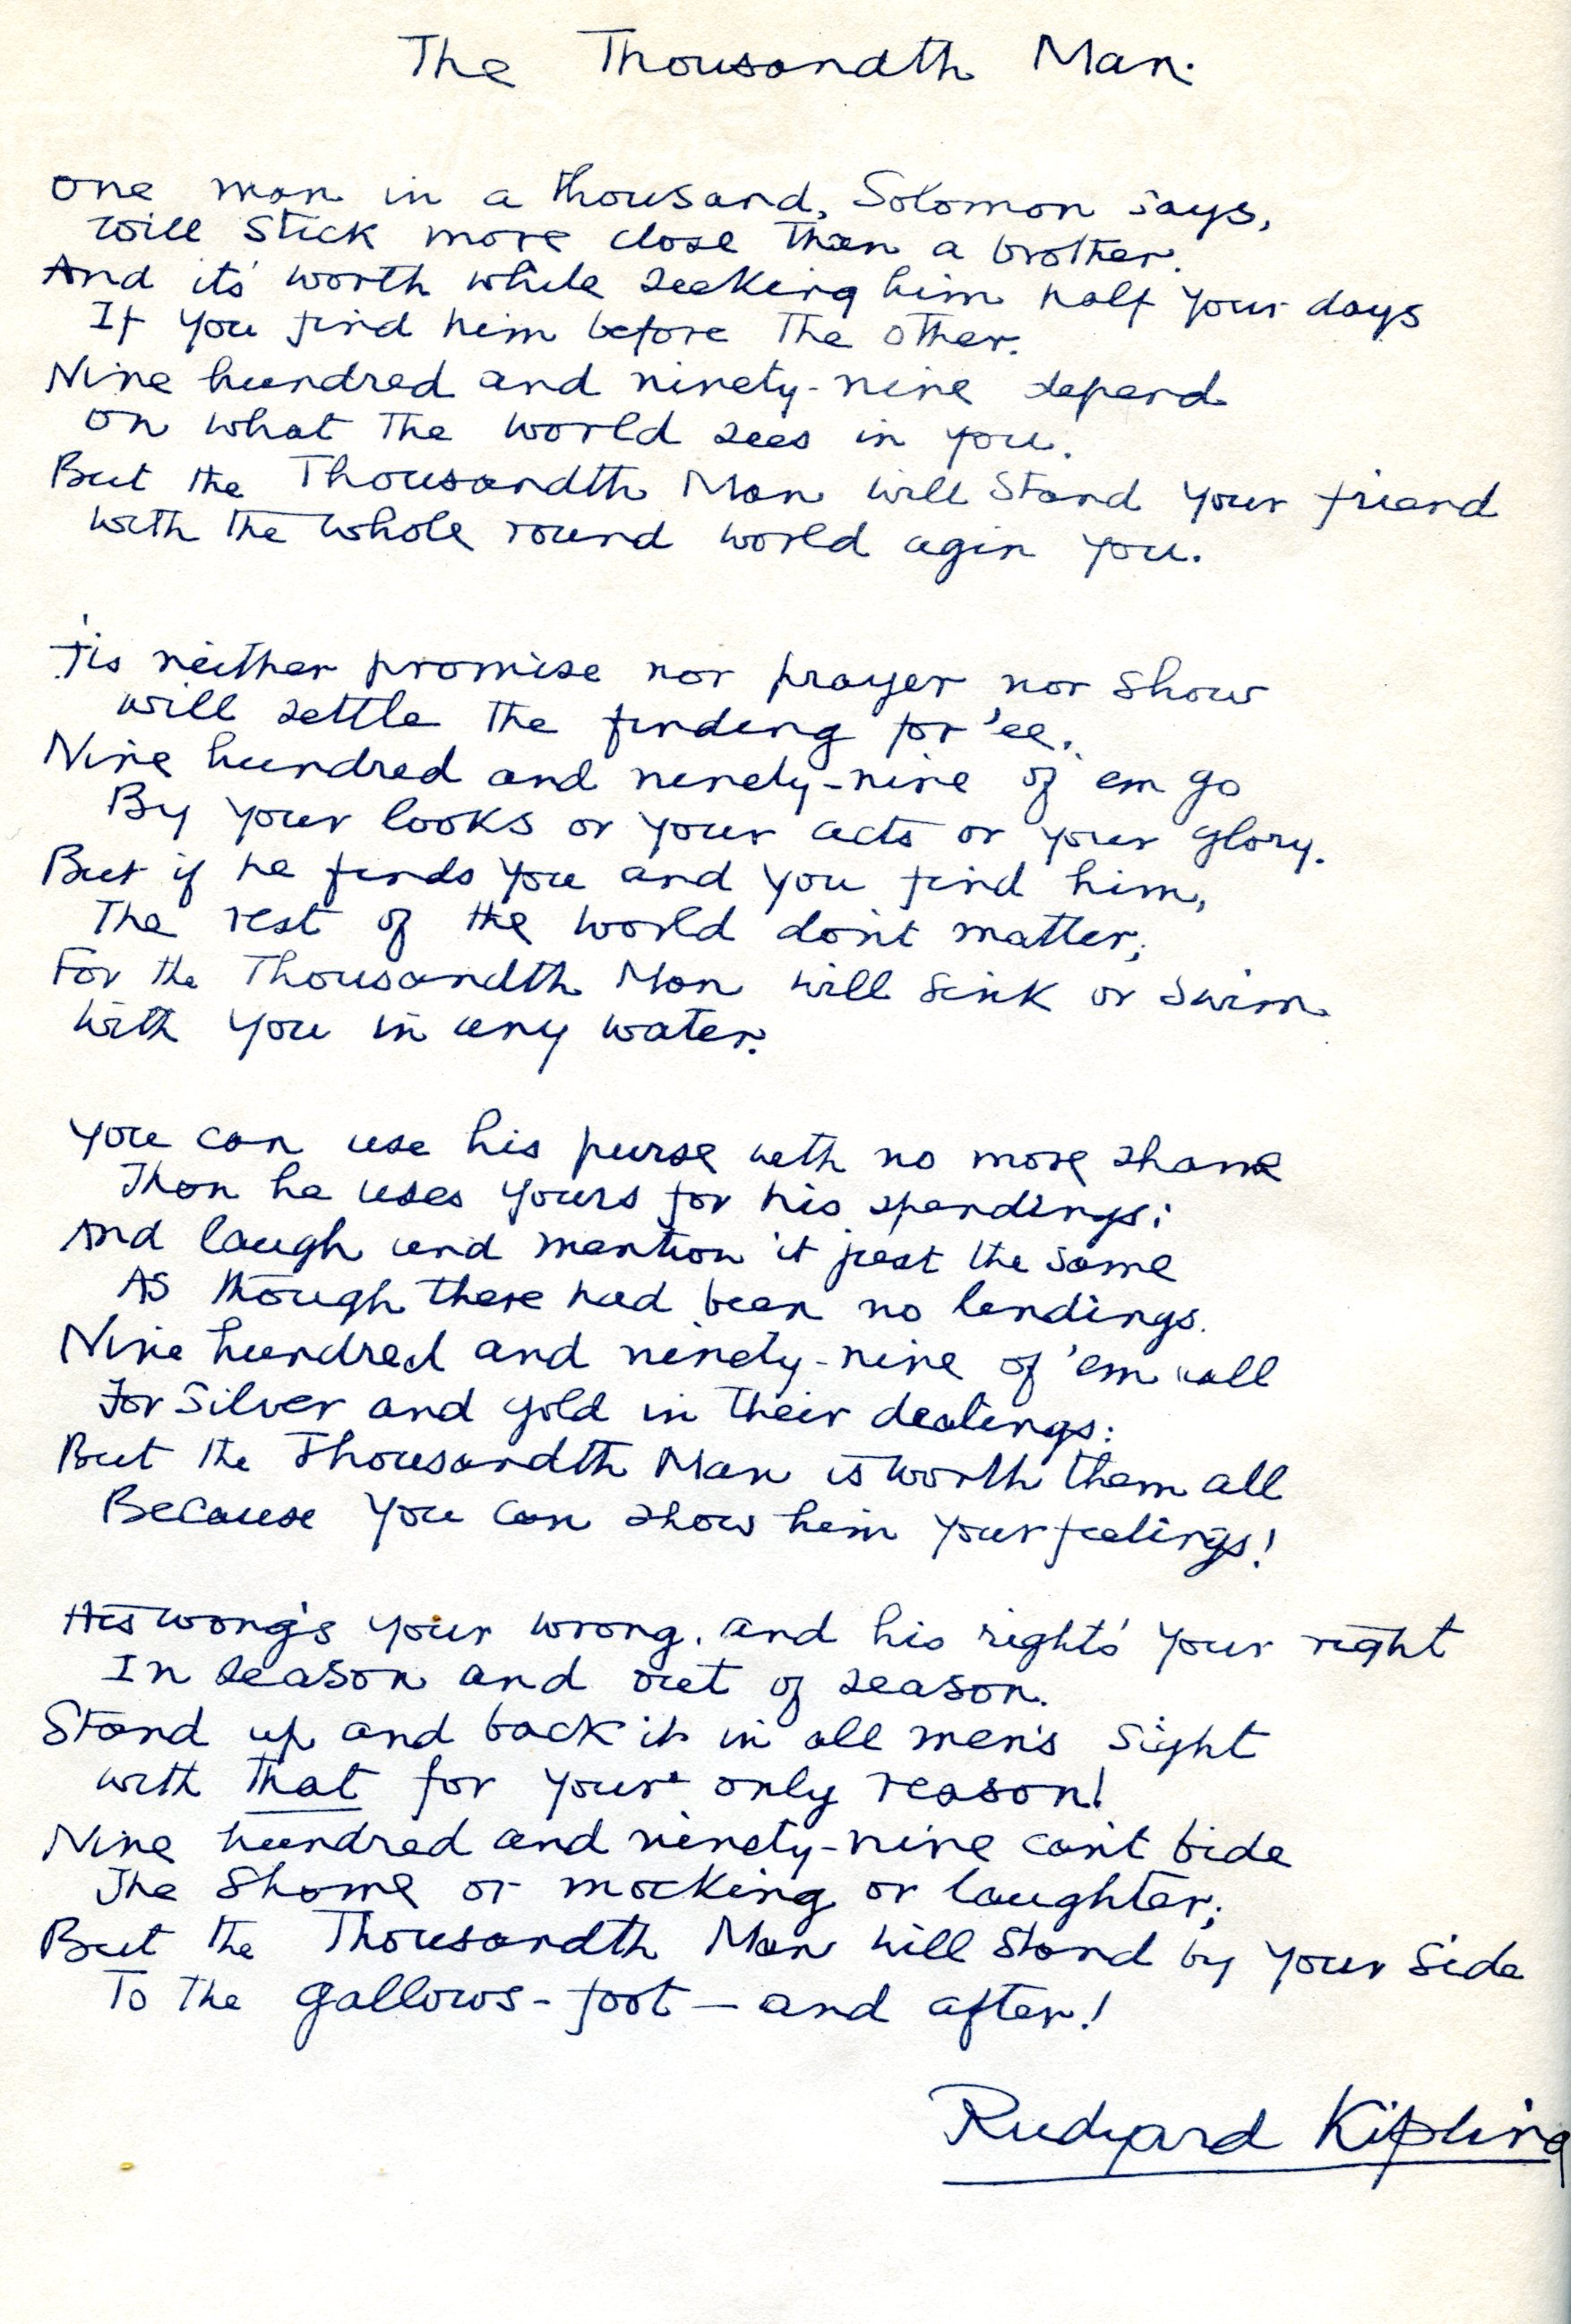 The Thousandth Man.
One man in a thousand, Solomon says,
Will stick more close than a brother.
And it's worth while seeking him half your days
If you find him before the other.
Nine hundred and ninety-nine depend
On what the world sees in you.
But the Thousandth Man will stand your friend
With the whole round world agin you.
'Tis neither promise nor prayer nor show
Will settle the finding for 'ee.
Nine hundred and ninety-nine of 'em go
By your looks or your acts or your glory.
But if he finds you and you find him,
The rest of the world don't matter;
For the Thousandth Man will sink or swim
With you in any water.
You can use his purse with no more shame
Than he uses yours for his spendings:
And laugh and mention it just the same
As though there had been no lendings.
Nine hundred and ninety-nine of 'em call
For silver and gold in their dealings:
But the Thousandth Man is worth them all
Because you can show him your feelings!
His wong's your wrong, and his right's your right
In season and out of season.
Stand up and back it in all men's sight
With that for your only reason!
Nine hundred and ninety-nine can't bide
The shame or mocking or laughter;
But the Thousandth Man will stand by your side
To the gallows-foot — and after!
Rudyard Kipling